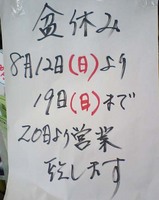 盆休み
8月12日(日)より
19日(日)まで
20日より営業
致します